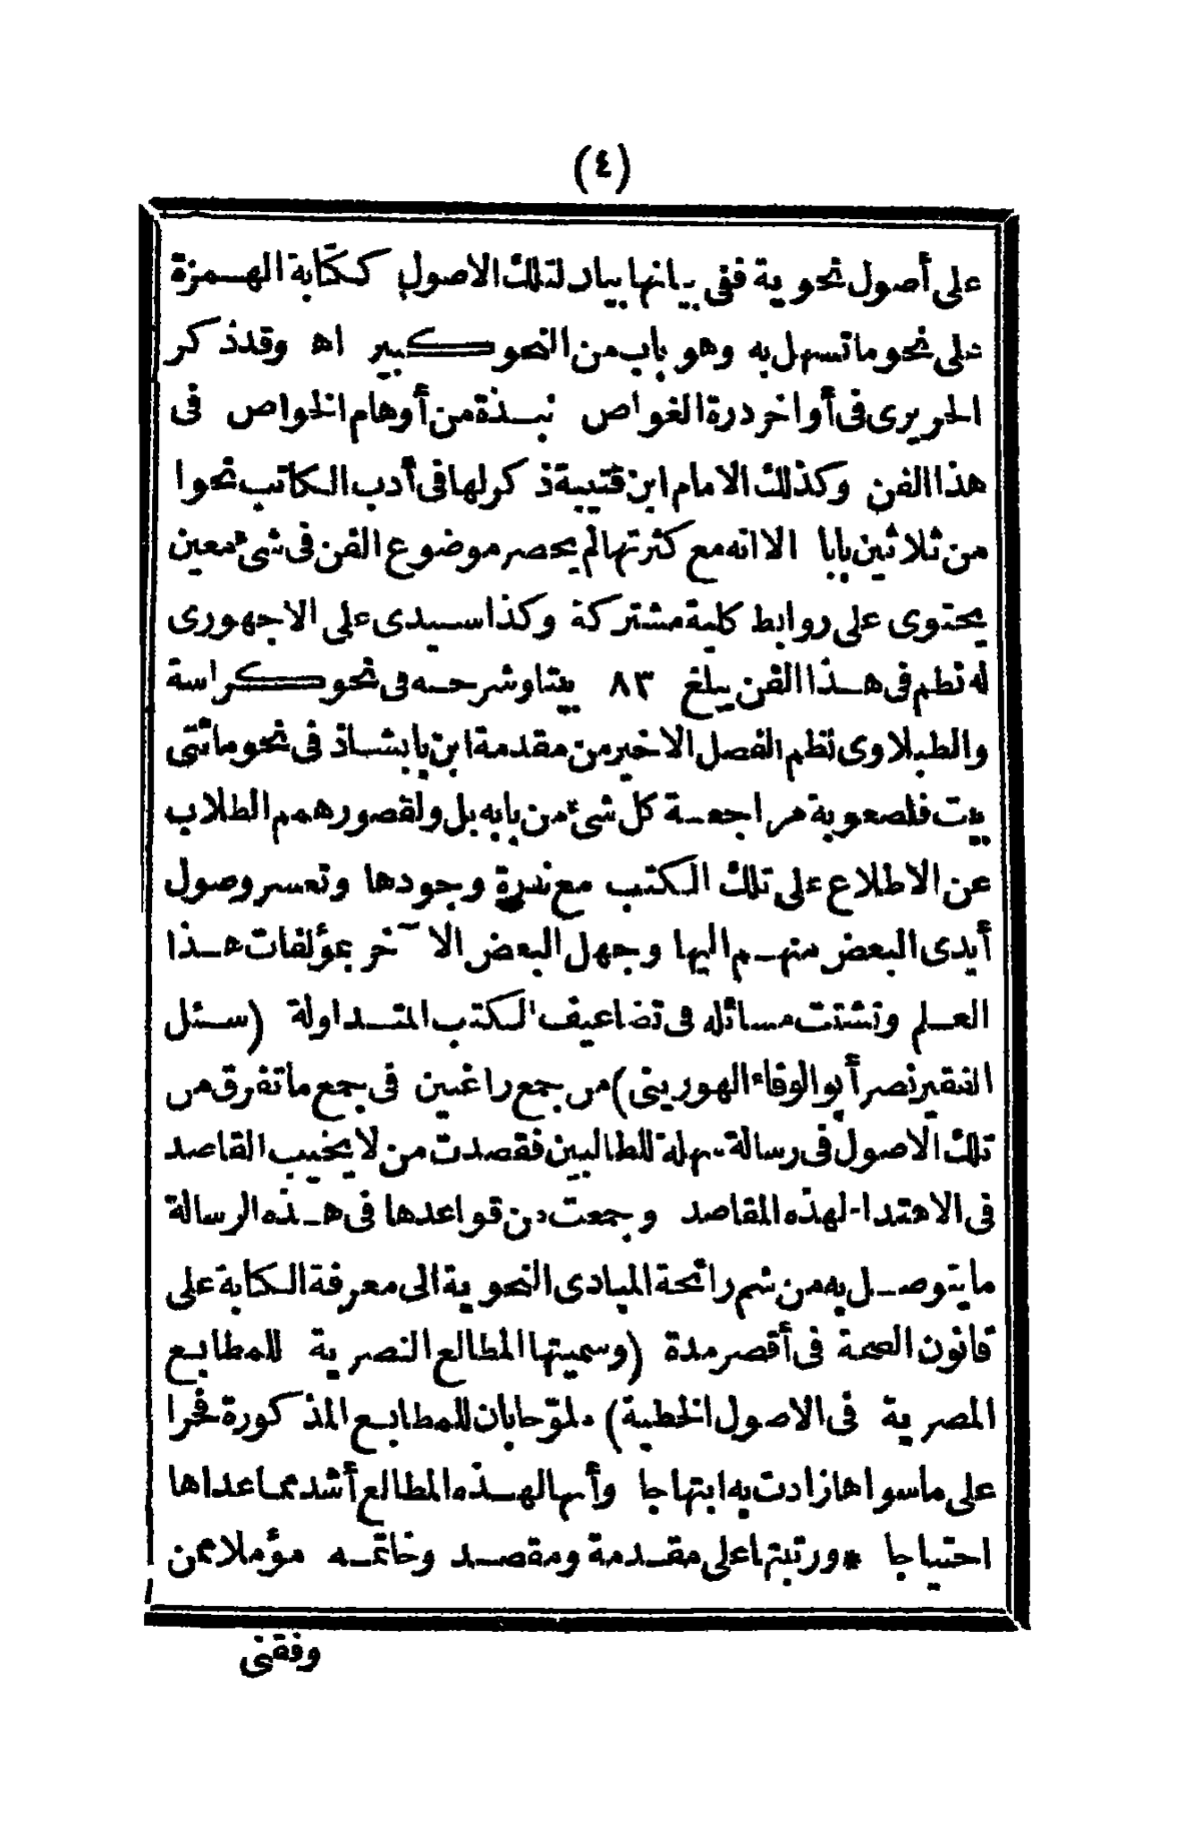 (٤)
على أصول نحوية ففي بيانها بيان لتلك الاصول ككتابة الهمزة
على نحو ما تسهل به وهو باب من النحو كبير اه وقد ذكر
الحريرى فى أواخر درة الغواص نبذة من أوهام الخواص فى
هذا الفن وكذلك الامام ابن قتيبة ذكر لها فى أدب الكاتب نحوا
من ثلاثين بابا الا انه مع كثرتها لم يحصر موضوع الفن فى شئ معين
يحتوى على روابط كلية مشتركة وكذا سيدى على الاجهورى
له نظم فى هذا الفن يبلغ ٨٣ بيتا وشرحه فى نحو كراسة
والطبلاوى نظم الفصل الاخير من مقدمة ابن بابشاذ فى نحو مائتى
بيت فلصعوبة مراجعة كل شئ من بابه بل ولقصور همم الطلاب
عن الاطلاع على تلك الكتب مع ندرة وجودها وتعسر وصول
أيدى البعض منهم اليها وجهل البعض الآخر بمؤلفات هذا
العلم وتشتت مسائله فى تضاعيف الكتب المتداولة (سئل
الفقير نصر أبو الوفاء الهورينى) من جمع راغبين فى جمع ما تفرق من
تلك الاصول فى رسالة سهلة للطالبين فقصدت من لا يخيب القاصد
فى الاهتداء لهذه المقاصد وجمعت من قواعدها فى هذه الرسالة
ما يتوصل به من شم رائحة المبادى النحوية الى معرفة الكتابة على
قانون الصحة فى أقصر مدة (وسميتها المطالع النصرية للمطابع
المصرية فى الاصول الخطية) ملوّحا بان للمطابع المذكورة فخرا
على ما سواها زادت به ابتهاجا وأنها لهذه المطالع أشد مما عداها
احتياجا * ورتبتها على مقدمة ومقصد وخاتمه مؤملا ممن
وفقنى